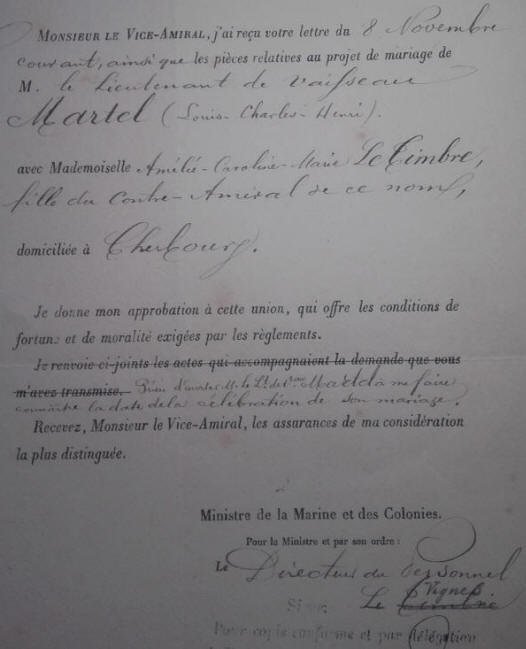 MONSIEUR LE VICE-AMIRAL, j'ai reçu votre lettre du 8 Novembre
courant, ainsi que les pièces relatives au projet de mariage de
M. le Lieutenant de vaisseau
Martel (Louis-Charles-Henri).
avec Mademoiselle Amélie-Caroline-Marie Le Timbre,
fille du Contre-Amiral de ce nom,
domiciliée à Cherbourg.
Je donne mon approbation à cette union, qui offre les conditions de
fortune et de moralité exigées par les règlements.
Je renvoie ci-joints les actes qui accompagnaient la demande que vous
m'avez transmise. Prière d'inviter M. le Lt de Veau Martel à me faire
connaître la date de la célébration de son mariage.
Recevez, Monsieur le Vice-Amiral, les assurances de ma considération
la plus distinguée.
Ministre de la Marine et des Colonies.
Pour le Ministre et par son ordre :
Le Directeur du Personnel
Signé Vignes
Le Timbre
Pour copie conforme et par délégation